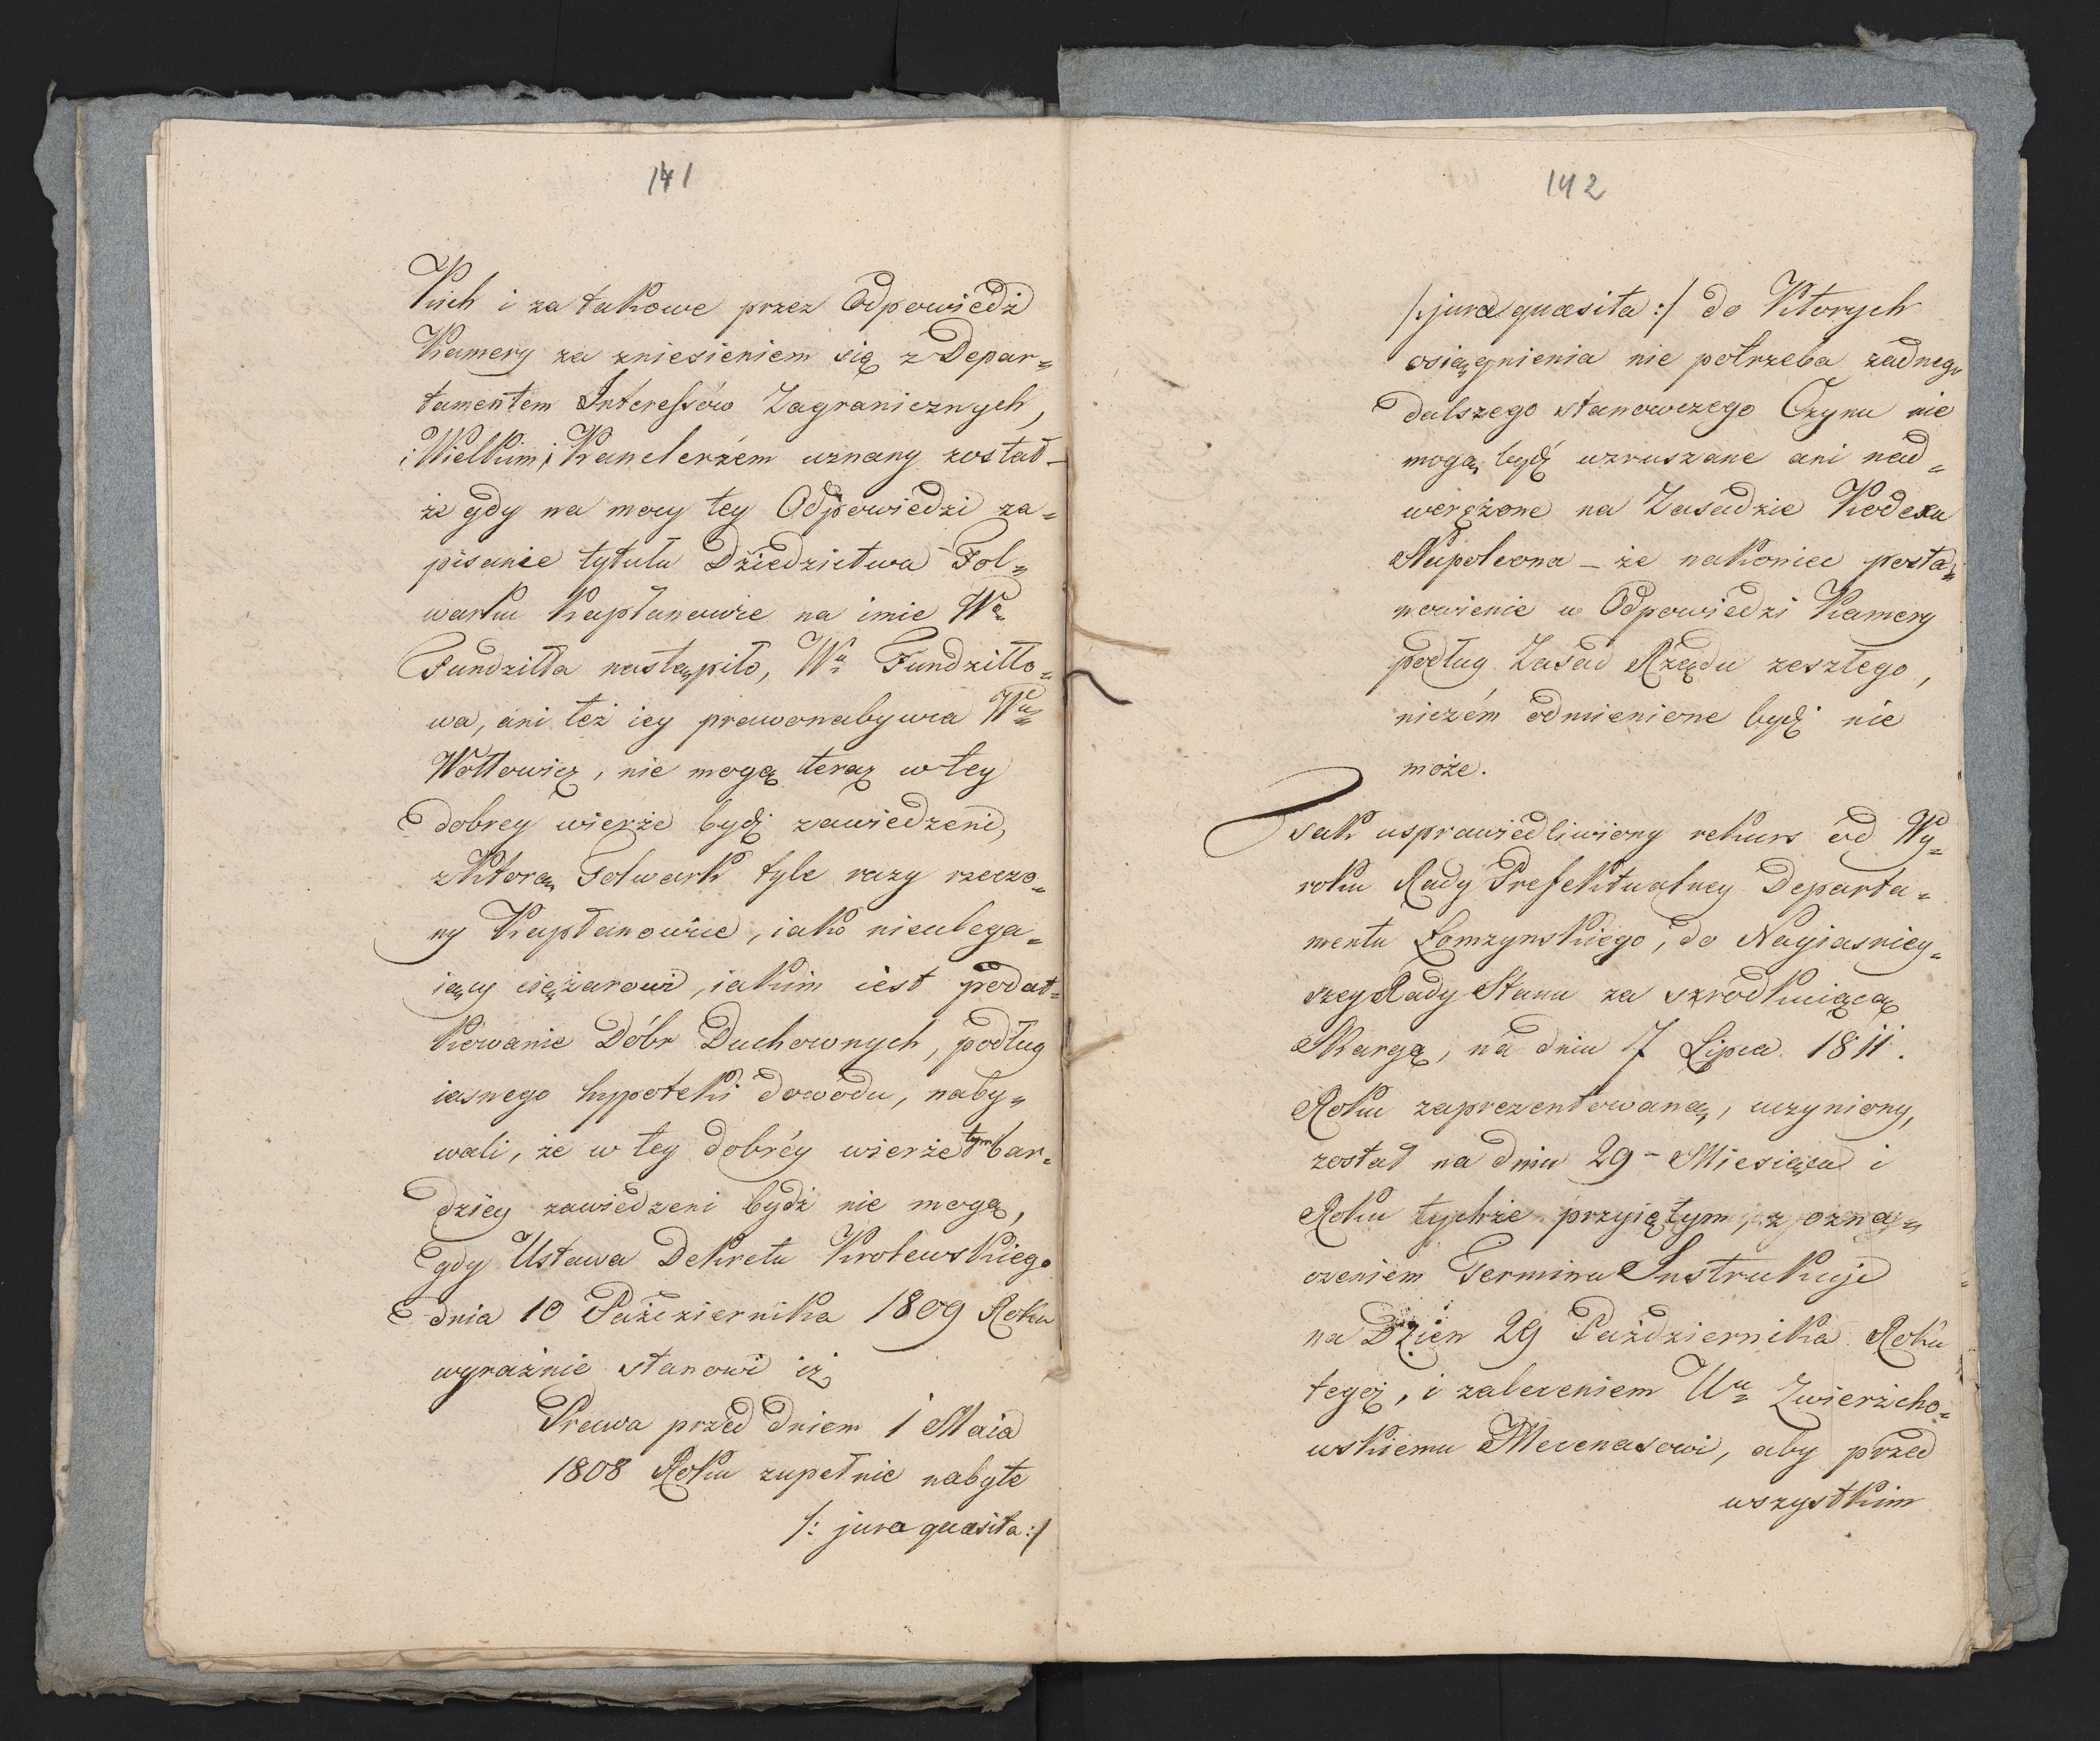 141
kich i za takowe przez Odpowiedź
Kamery za zniesieniem się z Depar=
tamentem Interessów Zagranicznych,
i Wielkim Kanclerzém uznany został –
że gdy na mocy tey Odpowiedzi za=
pisanie tytułu Dziedzictwa Fol=
warku Kapłanowie na imie Wo
Fundziłła nastąpiło, Wa Fundziłło=
wa, ani też iey prawonabywca Wny
Wołłowicz, nie mogą teraz w tey
dobrey wierze bydź zawiedzeni,
z którą Folwark tyle razy rzeczo=
ny Kapłanowice, iako nieulega=
iący ciężarowi, iakim iest podat=
kowanie Dóbr Duchownych, podług
iasnego hypoteki dowodu, naby=
wali, że w tey dobréy wierze tym bar=
dziey zawiedzeni bydź nie mogą,
gdy Ustawa Dekretu Krolewskiego
dnia 10 Października 1809 Roku
wyraźnie stanowi iż
Prawa przed dniem 1 Maia
1808 Roku zupełnie nabyte
/: jura quæsita :/
142
/: jura quæsita :/ do ktorych
osiągnienia nie potrzeba żadnego
dalszego stanowczego Czynu nie
mogą bydź wzruszane ani nad=
werężone na Zasadzie Kodexu
Napoleona – że nakoniec posta=
nowienie w Odpowiedzi Kamery
podług Zasad Rządu zeszłego,
niczém odmienione bydź nie
może.
Tak usprawiedliwiony rekurs od Wy=
roku Rady Prefekturalney Departa=
mentu Łomzynskiego, do Nayiasniey=
szey Rady Stanu za szrodkuiącą
Skargą, na dniu 17 Lipca 1811.
Roku zaprezentowaną, uczyniony,
został na dniu 29 – Miesiąca i
Roku tychże przyiętym, z ozna=
czeniem Terminu Instrukcji
na Dzień 29 Października Roku
tegoż, i zaleceniem Ur Zwierzcho=
wskiemu Mecenasowi, aby przed
wszystkim